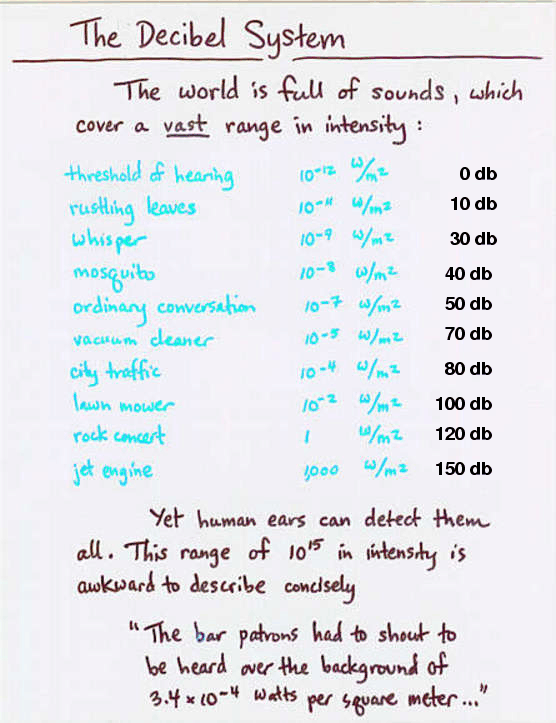 The Decibel System
The world is full of sounds, which
cover a vast range in intensity:
threshold of hearing 10⁻¹² W/m² 0 db
rustling leaves 10⁻¹¹ W/m² 10 db
whisper 10⁻⁹ W/m² 30 db
mosquito 10⁻⁸ W/m² 40 db
ordinary conversation 10⁻⁷ W/m² 50 db
vacuum cleaner 10⁻⁵ W/m² 70 db
city traffic 10⁻⁴ W/m² 80 db
lawn mower 10⁻² W/m² 100 db
rock concert 1 W/m² 120 db
jet engine 1,000 W/m² 150 db
Yet human ears can detect them
all. This range of 10¹⁵ in intensity is
awkward to describe concisely
"The bar patrons had to shout to
be heard over the background of
3.4 × 10⁻⁴ watts per square meter..."